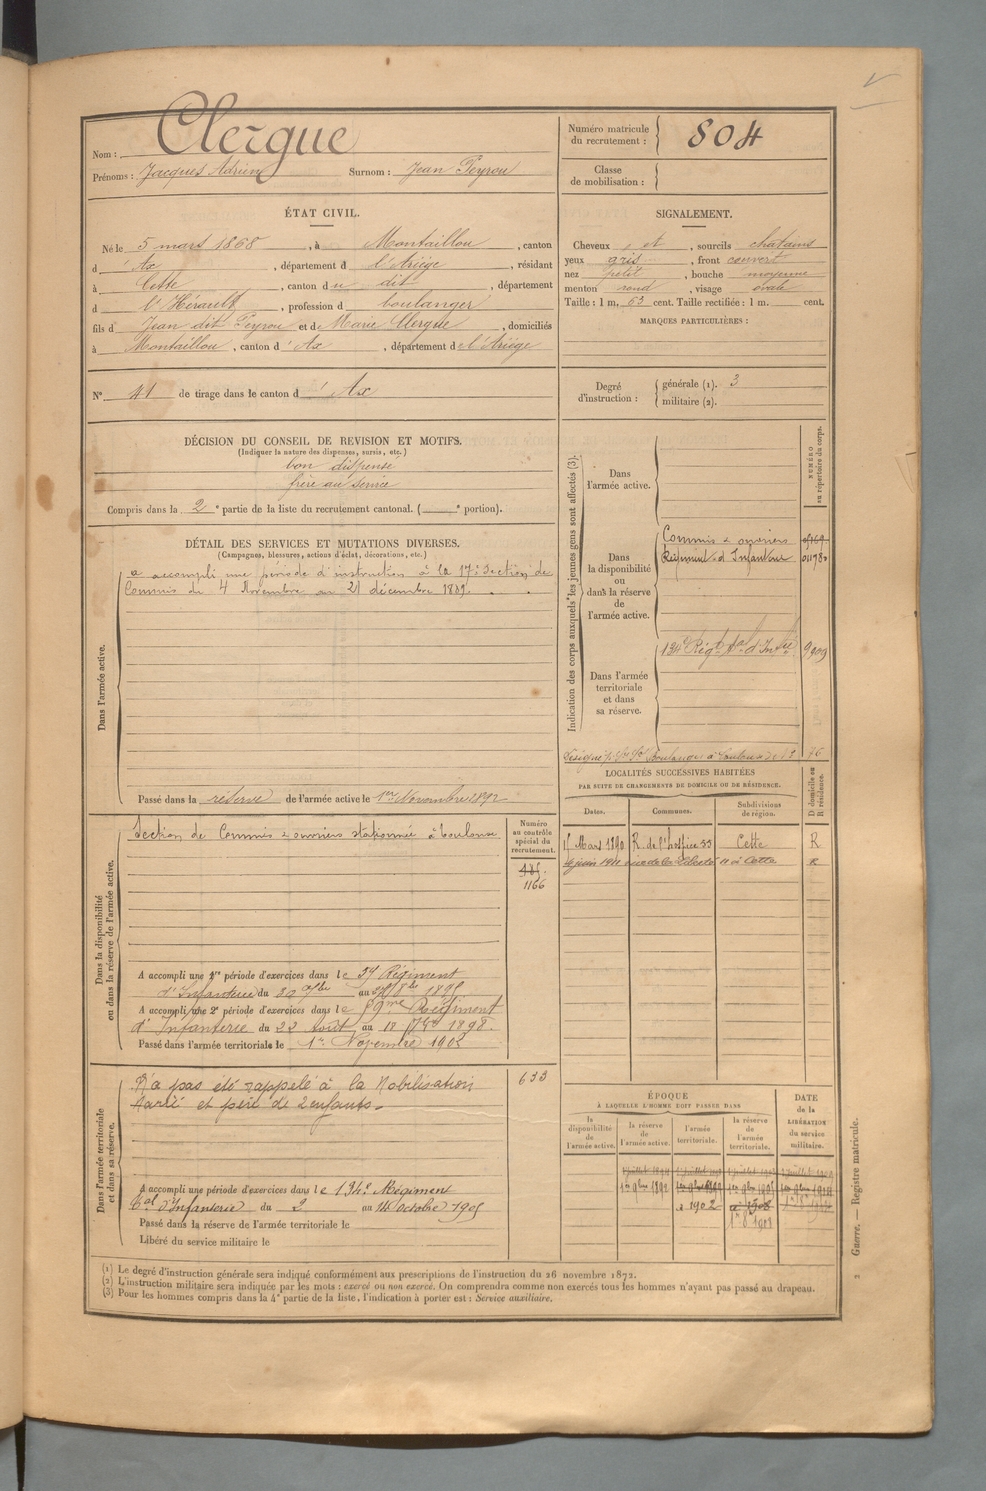 Nom : Clergue
Prénoms : Jacques Adrien Surnom : Jean Peyrou
Numéro matricule du recrutement : 804
Classe de mobilisation :
ÉTAT CIVIL.
Né le 5 mars 1868, à Montaillou, canton
d'Ax, département d l'Ariège, résidant
à Cette, canton du dit, département
d l'Hérault, profession d boulanger
fils d Jean dit Peyrou et de Marie Clergue, domiciliés
à Montaillou, canton d'Ax, département de l'Ariège
N° 41 de tirage dans le canton d'Ax
SIGNALEMENT.
Cheveux et, sourcils chatains
yeux gris, front couvert
nez petit, bouche moyenne
menton rond, visage ovale
Taille : 1 m. 63 cent. Taille rectifiée : 1 m. cent.
MARQUES PARTICULIÈRES :
Degré d'instruction : générale (1). 3
militaire (2).
DÉCISION DU CONSEIL DE REVISION ET MOTIFS.
(Indiquer la nature des dispenses, sursis, etc.)
bon dispense
frère au service
Compris dans la 2e partie de la liste du recrutement cantonal. (e portion).
DÉTAIL DES SERVICES ET MUTATIONS DIVERSES.
(Campagnes, blessures, actions d'éclat, décorations, etc.)
Dans l'armée active.
a accompli une période d'instruction à la 17e Section de
Commis du 4 Novembre au 21 décembre 1889.
Passé dans la réserve de l'armée active le 1er Novembre 1892
Dans la disponibilité ou dans la réserve de l'armée active.
Section de Commis & ouvriers stationnée à Toulouse
Numéro au contrôle spécial du recrutement.
1166
A accompli une 1re période d'exercices dans le Régiment
d'Infanterie du au 1895
A accompli une 2e période d'exercices dans le 59me Régiment
d'Infanterie du 22 Août au 18 7bre 1898.
Passé dans l'armée territoriale le 1er Novembre 1902
Dans l'armée territoriale et dans sa réserve.
N'a pas été rappelé à la Mobilisation
Marié et père de 2 enfants.
633
A accompli une période d'exercices dans le 134e Régiment
Tal d'Infanterie du 2 au 14 Octobre 1905
Passé dans la réserve de l'armée territoriale le
Libéré du service militaire le
Indication des corps auxquels les jeunes gens sont affectés (3).
NUMÉRO au répertoire du corps.
Dans l'armée active.
Dans la disponibilité ou dans la réserve de l'armée active.
Commis & ouvriers
Régiment d'Infanterie
Dans l'armée territoriale et dans sa réserve.
134e Régt Tal d'Infie
76
LOCALITÉS SUCCESSIVES HABITÉES
PAR SUITE DE CHANGEMENTS DE DOMICILE OU DE RÉSIDENCE.
Dates. Communes. Subdivisions de région. D domicile ou R résidence.
15 Mars 1890 R. de l'hospice 33 Cette R
4 juin 1911 rue de la Liberté 11 à Cette R
ÉPOQUE
À LAQUELLE L'HOMME DOIT PASSER DANS
DATE de la LIBÉRATION du service militaire.
la disponibilité de l'armée active. la réserve de l'armée active. l'armée territoriale. la réserve de l'armée territoriale.
1er 9bre 1892
1902
(1) Le degré d'instruction générale sera indiqué conformément aux prescriptions de l'instruction du 26 novembre 1872.
(2) L'instruction militaire sera indiquée par les mots : exercé ou non exercé. On comprendra comme non exercés tous les hommes n'ayant pas passé au drapeau.
(3) Pour les hommes compris dans la 4e partie de la liste, l'indication à porter est : Service auxiliaire.
2 Guerre. — Registre matricule.